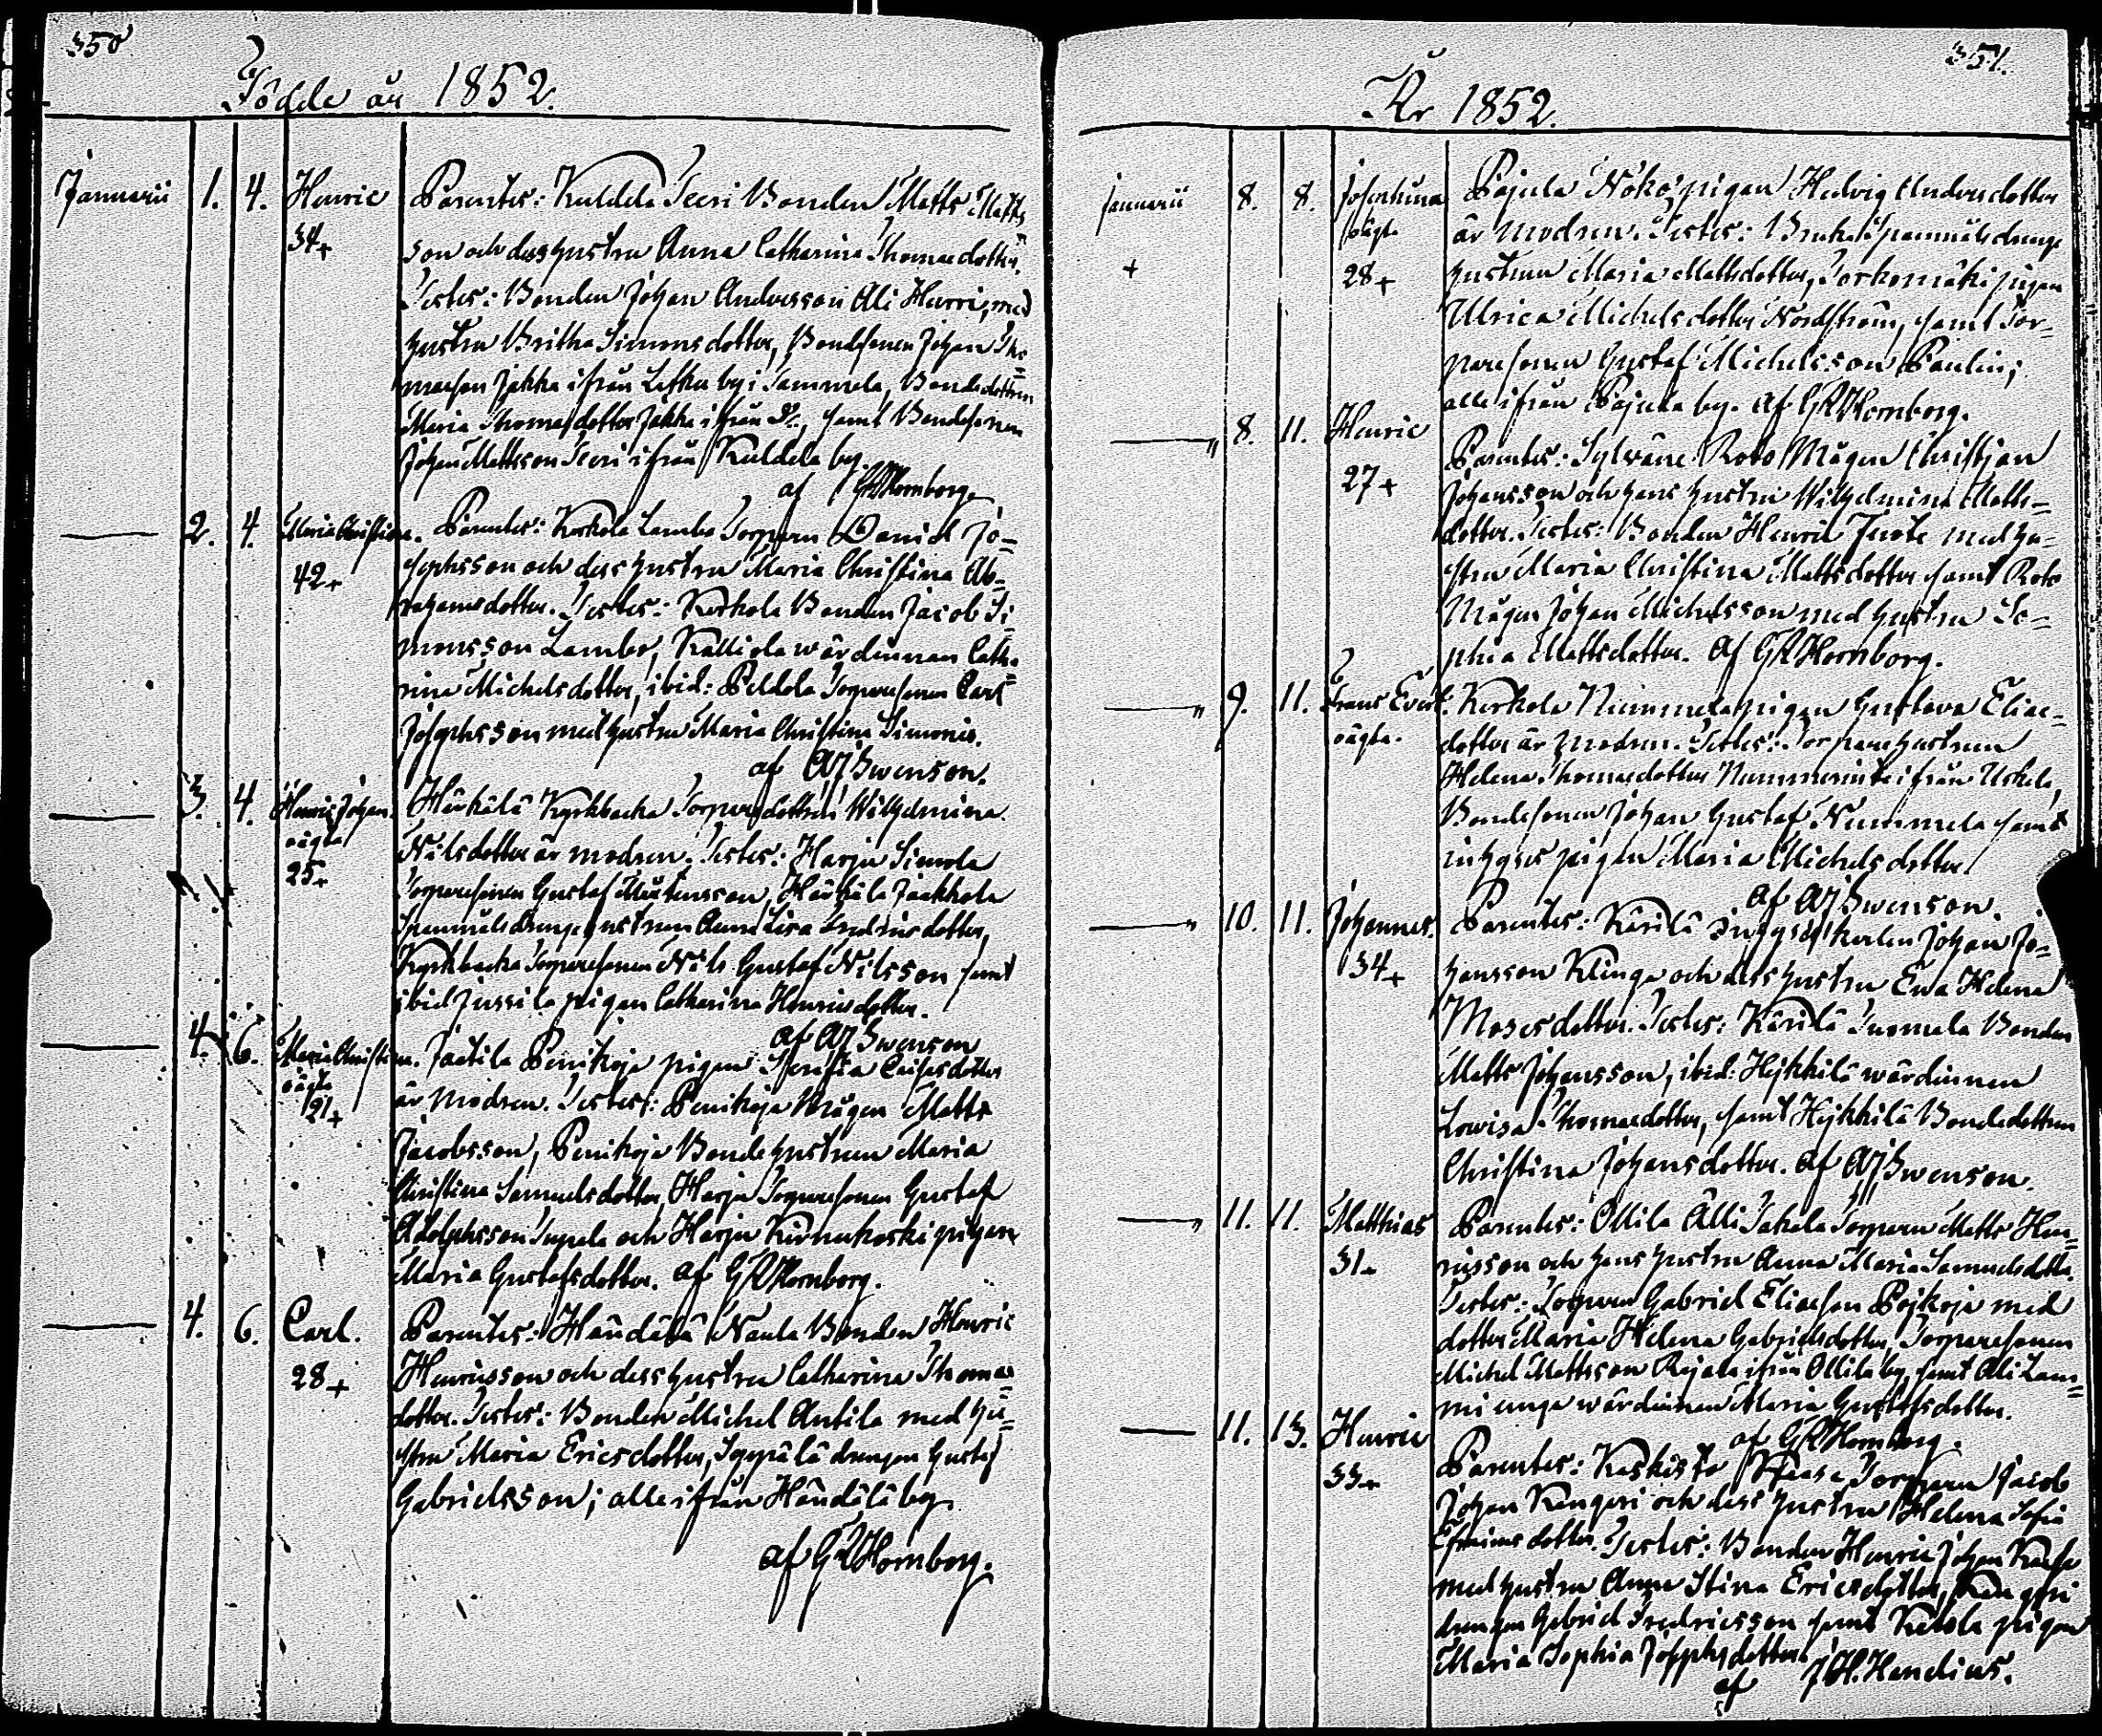 350
Födde år 1852.
Januarii 1. 4. Henric Parentes: Kuldela Seeri Bonden Matts Matts
34+ son och dess hustru Anna Catharina Thomasdotter.
Testes: Bonden Johan Andersson Ali Harri, med
hustru Britha Simonsdotter, Bondesonen Johan Tho=
masson Jakka ifrån by i Sammela, Bondedottren
Maria Thomasdotter Jakka ifrån D:o, samt Bondesonen
Johan Mattsson Seeri ifrån Kuldela by.
af GRHornborg.
2. 4. Maria Christina. Parentes: Korkola Lambo Torparn David Jo=
42+ sephsson och dess hustru Maria Christina Ab=
rahamsdotter. Testes: Korkola Bonden Jacob Si=
monsson Lambo, Kalliola wärdinnan Catha=
rina Michelsdotter, ibid: Peldola Torparesonen Carl
Josephsson med hustru Maria Christina Simonsd.
af AJSwenson.
3. 4. Henric Johan. Härkälä Kyrkbacka Torparedottren Wilhelmina
oägta Nilsdotter är modren. Testes: Harju Simola
25+ Torparesonen Gustaf Mårtensson, Härkälä Jaakkola
Spanmålsdrängehustrun Anna Lisa Fredricsdotter,
Kyrkbacka Torparesonen Nils Gustaf Nilsson samt
ibid Jussila pigan Catharina Henricsdotter.
af AJSwenson
4. 6. Maria Christina. Jaatila Penikoja pigan Serafia
oägta är modren. Testes: Penikoja Mågen Matts
21+ Jacobsson, Penikoja Bondehustrun Maria
Christina Samuelsdotter, Harju Torparesonen Gustaf
Adolphsson och Harju Kirnukoski pigan
Maria Gustafsdotter. af GRHornborg.
4. 6. Carl. Parentes: Händälä Naula Bonden Henric
28+ Henricsson och dess hustru Catharina Thomas=
dotter. Testes: Bonden Michel Antila med hu=
stru Maria Ericsdotter, Seppälä drengen Gustaf
Gabrielsson; alle ifrån Händälä by.
af GRHornborg.
351.
År 1852.
Januarii 8. 8. Josephina Pajula Nökö pigan Hedvig Andersdotter
oägta är modren. Testes: Spanmålsdränge
+ 28+ hustrun Maria Mattsdotter, Torkomäki pigan
Ulrica Michelsdotter Nordström, samt Tor=
paresonen Gustaf Michelsson Paulin;
alle ifrån Pajula by. af GRHornborg.
8. 11. Henric Parentes: Sylväne Roto Mågen Christjan
27+ Johansson och hans hustru Wilhelmina Matts=
dotter. Testes: Bonden Henric med hu=
stru Maria Christina Mattsdotter samt Roto
Mågen Johan Michelsson med hustru So=
phia Mattsdotter. af GRHornborg.
9. 11. Frans Evert. Korkola Nummela pigan Gustava Elias=
oägta. dotter är modren. Testes: Torparehustrun
Helena Thomasdotter Nummenniitu ifrån Uskela,
Bondesonen Johan Gustaf Nummela samt
inhyses pigan Maria Michelsdotter
af AJSwenson.
10. 11. Johannes. Parentes: Kärilä Inhyseskarlen Johan Jo=
34+ hansson Klinga och dess hustru Ewa Helena
Mosesdotter. Testes: Kärilä Tuomela Bonden
Matts Johansson, ibid: Hejkkilä wärdinnan
Lowisa Thomasdotter, samt Hejkkilä Bondedottren
Christina Johansdotter. af AJSwenson.
11. 11. Matthias Parentes: Ollila Älli Jakola Torparn Matts Hen=
31+ ricsson och hans hustru Anna Maria Samuelsdotter.
Testes: Torparn Gabriel Eliasson Pojkoja med
dotter Maria Helena Gabrielsdotter, Torparesonen
Michel Mattsson Rajala ifrån Ollila by, samt Ali Lam=
mi unga wärdinnan Maria Gustafsdotter.
af GRHornborg.
11. 13. Henric Parentes: Kaskisto Torparn Jacob
33+ Johan Kangari och dess hustru Helena Sofia
Efraimsdotter. Testes: Bonden Henric Johan
med hustru Anna Stina Ericsdotter,
drengen Gabriel Fredricsson samt Ketola pigan
Maria Sophia Josephsdotter.
af J.H.Handius.